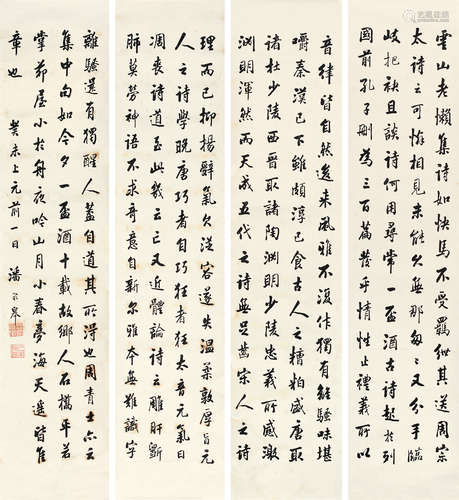 雲山老懶集詩如快馬不受羈似其送周宗
太詩云可憐相見未能久無那匆々又分手臨
岐把袂且談詩何用尋常一盃酒古詩起於列
國前孔子刪為三百篇發乎情性止禮義所以
音律皆自然後來風雅不復作獨有離騷味堪
嚼秦漢已下雖頗淳已食古人之糟粕盛唐取
諸杜少陵西晉取諸陶淵明少陵忠義所感激
淵明渾然而天成五代之詩無足齒宗人之詩
理而已抑揚辭氣欠從容遂失溫柔敦厚旨元
人之詩學晚唐巧者自巧狂者狂太音元氣日
凋喪詩道至此幾云亡又近體論詩云雕肝
肺莫勞神語不求奇意自新爾雅本無難識字
離騷還有獨醒人蓋自道其所得也周青士亦云
集中句如今夕一盃酒十載故鄉人石橋平若
掌茆屋小於舟夜吟山月小春夢海天遥皆佳
章也 癸未上元前一日 潘齡皋